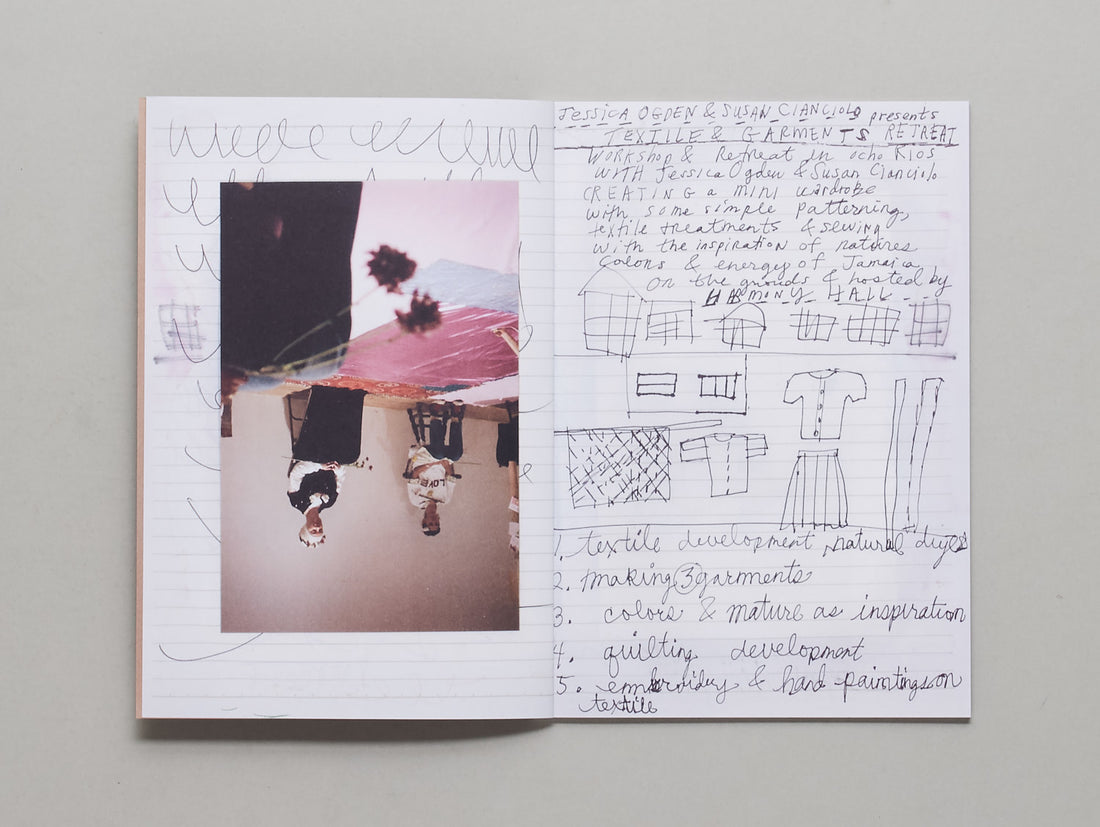 Jessica OGDEN & SUSAN CIANCIOLO presents
TEXTILE & GARMENTS RETREAT
WORKSHOP & Retreat in ocho Rios
WITH Jessica Ogden & Susan Cianciolo
CREATING a mini wardrobe
with some simple patterning,
textile treatments & sewing
with the inspiration of natures
Colors & energy of Jamaica
on the grounds & hosted by
HARMONY HALL
1. textile development, natural dyes
2. making 3 garments
3. colors & nature as inspiration
4. quilting development
5. embroidery & hand paintings on
textile
LOVE